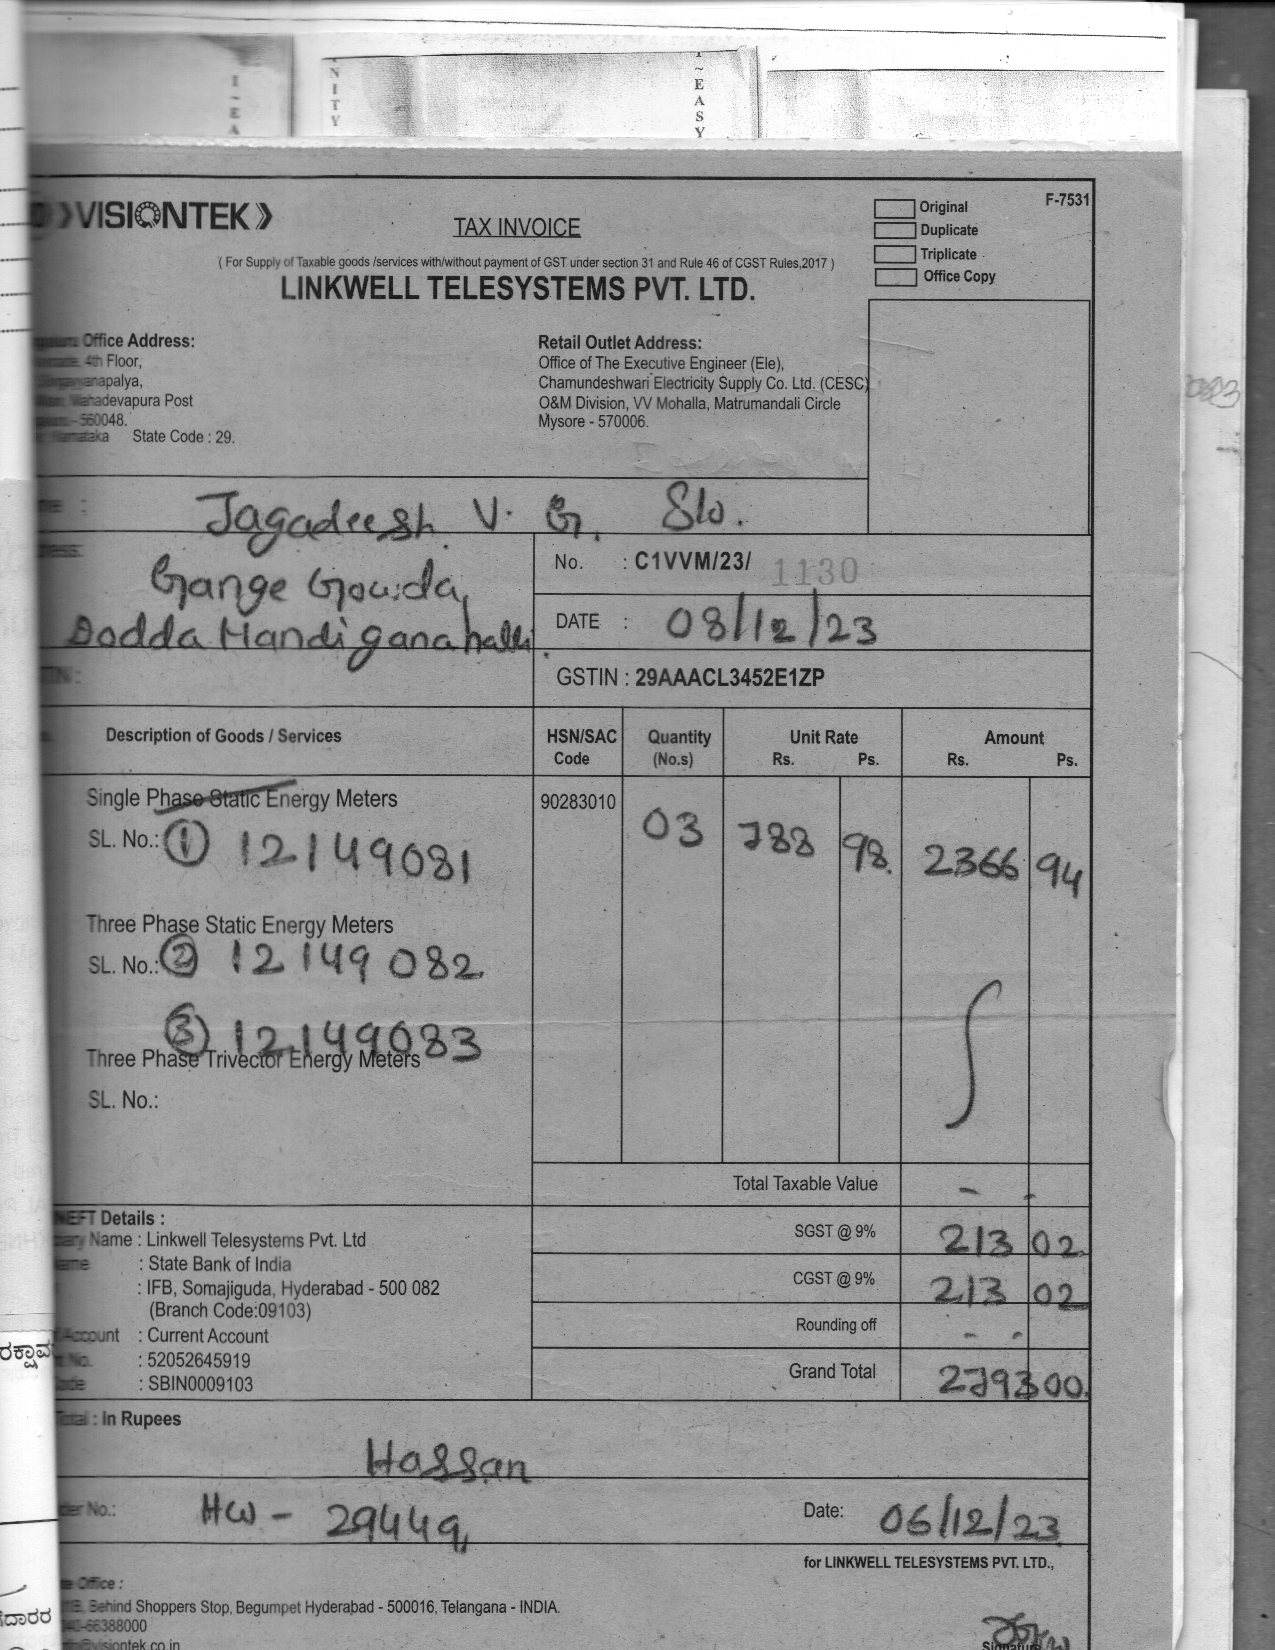 NITY
I ~ EA
I ~ EASY
VISIONTEK
TAX INVOICE
F-7531
Original
Duplicate
Triplicate
Office Copy
( For Supply of Taxable goods /services with/without payment of GST under section 31 and Rule 46 of CGST Rules,2017 )
LINKWELL TELESYSTEMS PVT. LTD.
Office Address:
4th Floor,
Mahadevapura Post
- 560048.
Karnataka State Code : 29.
Retail Outlet Address:
Office of The Executive Engineer (Ele),
Chamundeshwari Electricity Supply Co. Ltd. (CESC)
O&M Division, VV Mohalla, Matrumandali Circle
Mysore - 570006.
Jagadeesh V. G. S/o.
Gange Gowda,
Dodda Handiganahalli.
No. : C1VVM/23/ 1130
DATE : 08/12/23
GSTIN : 29AAACL3452E1ZP
Description of Goods / Services HSN/SAC Code Quantity (No.s) Unit Rate Rs. Ps. Amount Rs. Ps.
Single Phase Static Energy Meters 90283010 03 788 98. 2366 94
SL. No.: ① 12149081
Three Phase Static Energy Meters
SL. No.: ② 12149082
③ 12149083
Three Phase Trivector Energy Meters
SL. No.:
Total Taxable Value - -
SGST @ 9% 213 02
CGST @ 9% 213 02
Rounding off - -
Grand Total 2793 00.
NEFT Details :
Name : Linkwell Telesystems Pvt. Ltd
: State Bank of India
: IFB, Somajiguda, Hyderabad - 500 082
(Branch Code:09103)
Account : Current Account
No. : 52052645919
: SBIN0009103
Total : In Rupees
Hassan
No.: HW - 29449,
Date: 06/12/23
for LINKWELL TELESYSTEMS PVT. LTD.,
Office :
Behind Shoppers Stop, Begumpet Hyderabad - 500016, Telangana - INDIA.
-66388000
@visiontek.co.in
Signature